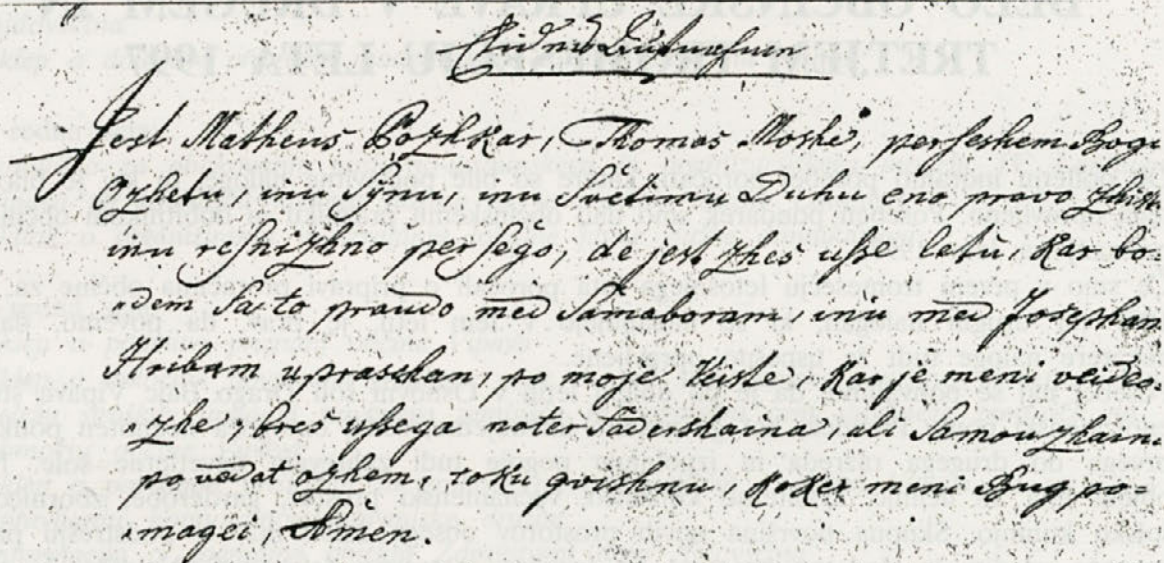 Jest Matheus Pozhkar, Thomas Moshe, perseshem Bogu
Ozhetu, inu Synu, inu Svetimu Duhu eno pravo zhisto
inu resnizhno persego, de jest zhes usse letu, kar bo=
=dem sa to praudo med Samaboram, inu med Josepham
Hribam uprashan, po moje viste, kar je meni veideo=
=zhe, bres ussega noter sadershaina, ali samouzhaine
povedat ozhem, toku gvishnu, koker meni Bug po=
=magei, Amen.